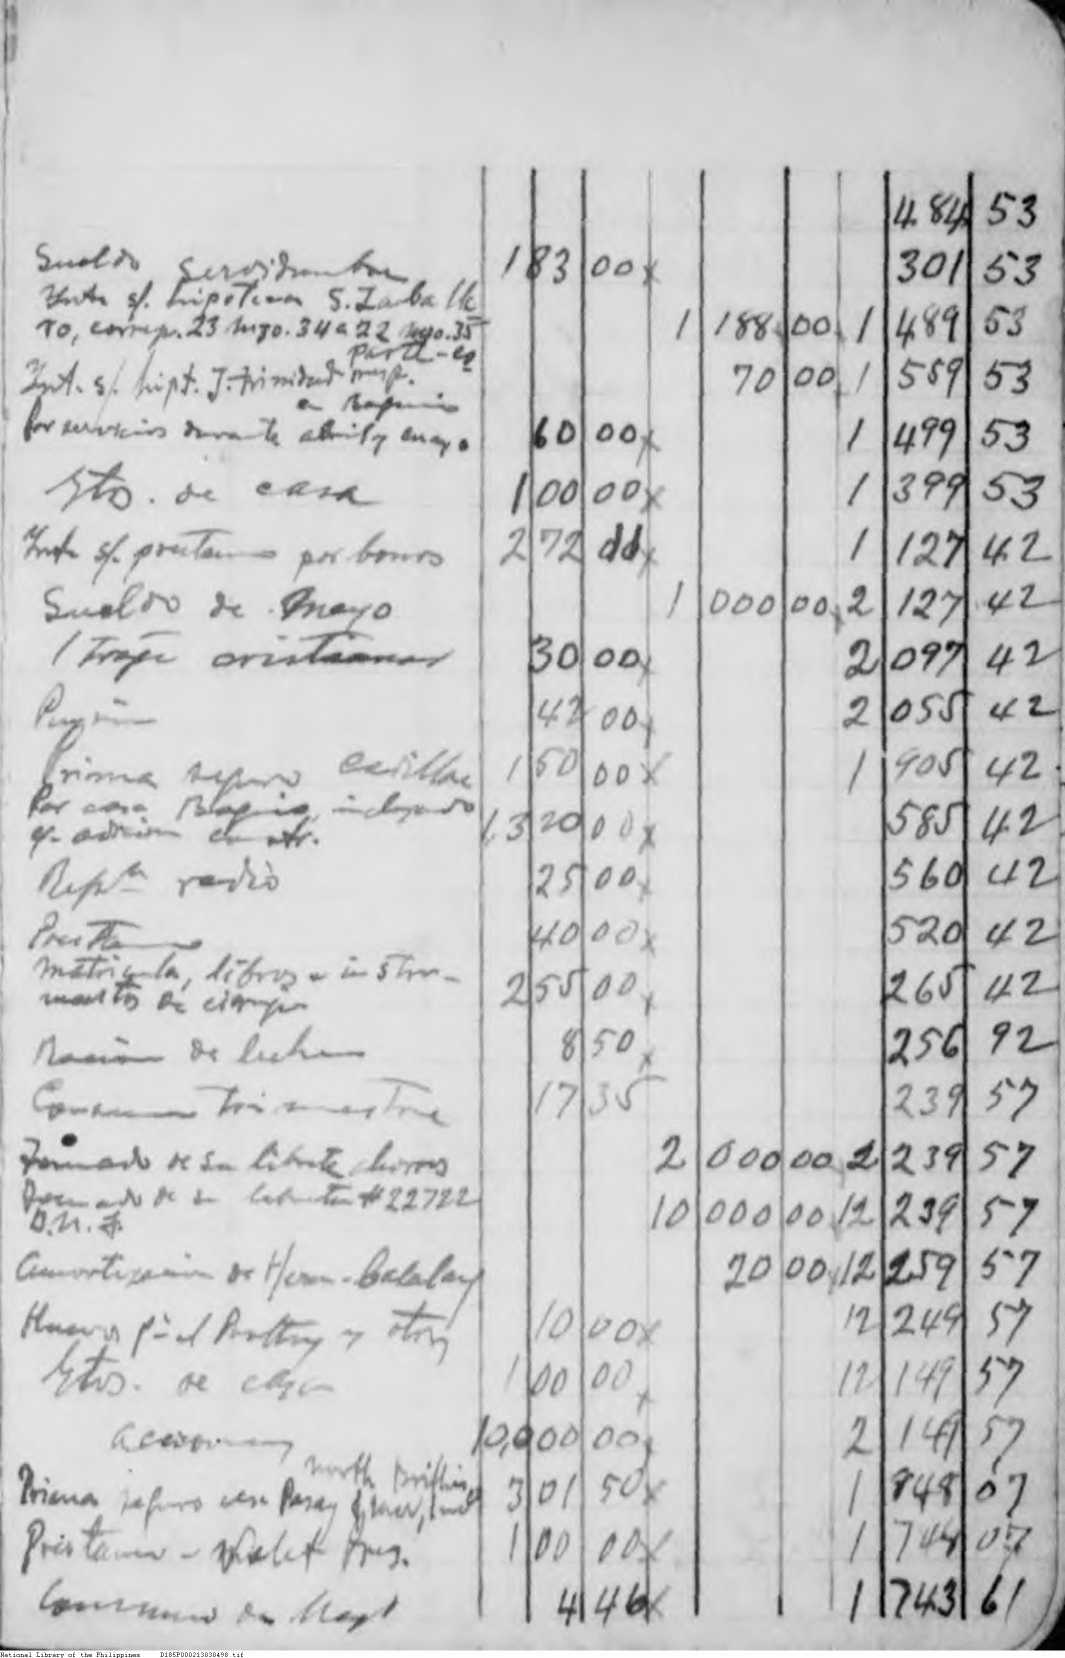 484 53
Sueldo servidumbre 183 00 x 301 53
Ints s/. hipoteca S. Zaballe
ro, corresp. 23 mzo. 34 a 22 mzo. 35 1 188 00 1 489 53
part-
Int. s/. hipt. J. Trinidad 70 00 1 559 53
en Baguio
Por servicios durante abril y mayo 60 00 x 1 499 53
Gtos. de casa 100 00 x 1 399 53
Ints s/. prestamo por bonos 272 11 x 1 127 42
Sueldo de Mayo 1 000 00 2 127 42
1 Traje 30 00 x 2 097 42
42 00 x 2 055 42
Prima seguro Cadillac 150 00 x 1 905 42
Por casa Baguio, incluyendo
adicion constr. 1,320 00 x 585 42
Repn radio 25 00 x 560 42
Prestamo 40 00 x 520 42
Matricula, libros e instru-
mentos de 255 00 x 265 42
Racion de leche 8 50 x 256 92
Consumo trimestre 17 35 239 57
Tomado de su libreta ahorros 2 000 00 2 239 57
Tomado de su libreta #22722 10 000 00 12 239 57
B.N.F.
Amortizacion de Hern-Balalay 20 00 12 259 57
Huevos pa el Poultry y otros 10 00 x 12 249 57
Gtos. de casa 100 00 x 12 149 57
acciones 10,000 00 2 149 57
North British
Prima seguro casa Pasay 301 50 x 1 848 07
Prestamo - 100 00 x 1 748 07
Consumo de Mayo 4 46 x 1 743 61
National Library of the Philippines D185P000213030498.tif